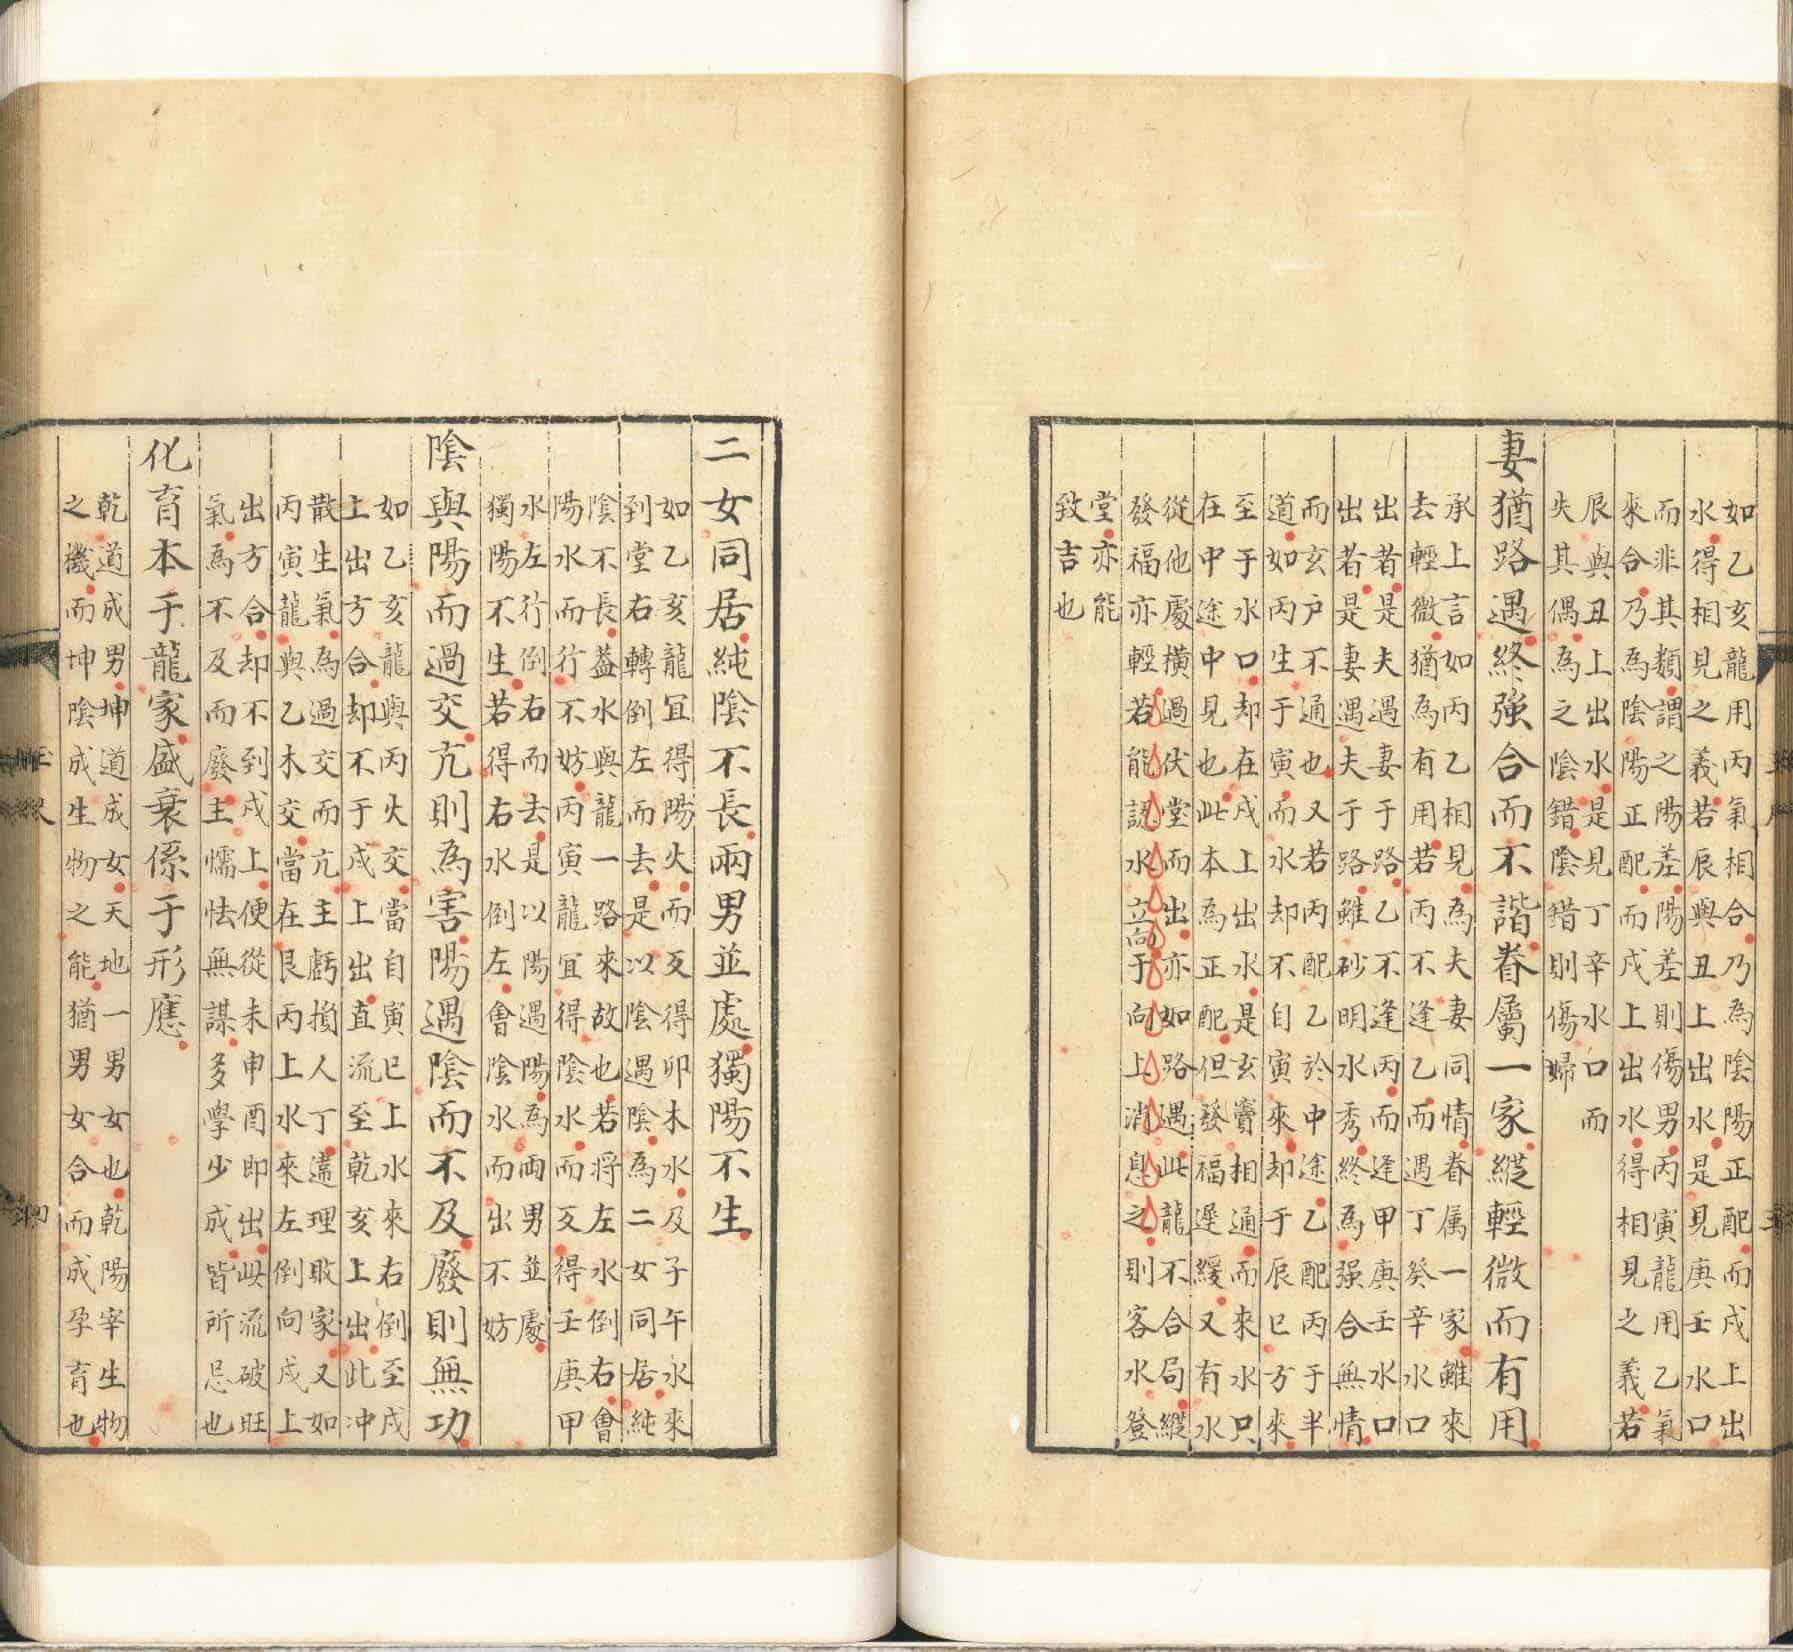 如乙亥龍用丙氣相合乃為陰陽正配而戌上出
水得相見之義若辰與丑上出水是見庚壬水口
而非其類謂之陽差陽差則傷男丙寅龍用乙氣
來合乃為陰陽正配而戌上出水得相見之義若
辰與丑上出水是見丁辛水口而
失其偶為之陰錯陰錯則傷婦
妻猶路遇終強合而不諧眷屬一家縱輕微而有用
承上言如丙乙相見為夫妻同情眷属一家雖來
去輕微猶為有用若丙不逢乙而遇丁癸辛水口
出者是夫遇妻于路乙不逢丙而逢甲庚壬水口
出者是妻遇夫于路雖砂明水秀終為强合無情
而玄户不通也又若丙配乙於中途乙配丙于半
道如丙生于寅而水却不自寅來却于辰巳方來
至于水口却在戌上出水是玄竅相通而來水只
在中途中見也此本為正配但發福遲緩又有水
從他處橫過伏堂而出亦如路遇此龍不合局縱
發福亦輕若能認水立向于向上消息之則客水登
堂亦能
致吉也
二女同居純陰不長兩男並處獨陽不生
如乙亥龍宜得陽火而亥得卯木水及子午水來
到堂右轉倒左而去是以陰遇陰為二女同居純
陰不長葢水與龍一路來故也若将左水倒右會
陽水而行不妨丙寅龍宜得陰水而亥得壬庚甲
水左行倒右而去是以陽遇陽為両男並處
獨陽不生若得右水倒左會陰水而出不妨
陰與陽而過交亢則為害陽遇陰而不及廢則無功
如乙亥龍與丙火交當自寅巳上水來右倒至戌
上出方合却不于戌上出直流至乾亥上出此冲
散生氣為過交而亢主虧損人丁違理敗家又如
丙寅龍與乙木交當在艮丙上水來左倒向戌上
出方合却不到戌上便從未申酉即出此流破旺
氣為不及而廢主懦怯無謀多學少成皆所忌也
化育本于龍家盛衰係于形應
乾道成男坤道成女天地一男女也乾陽宰生物
之機而坤陰成生物之能猶男女合而成孕育也